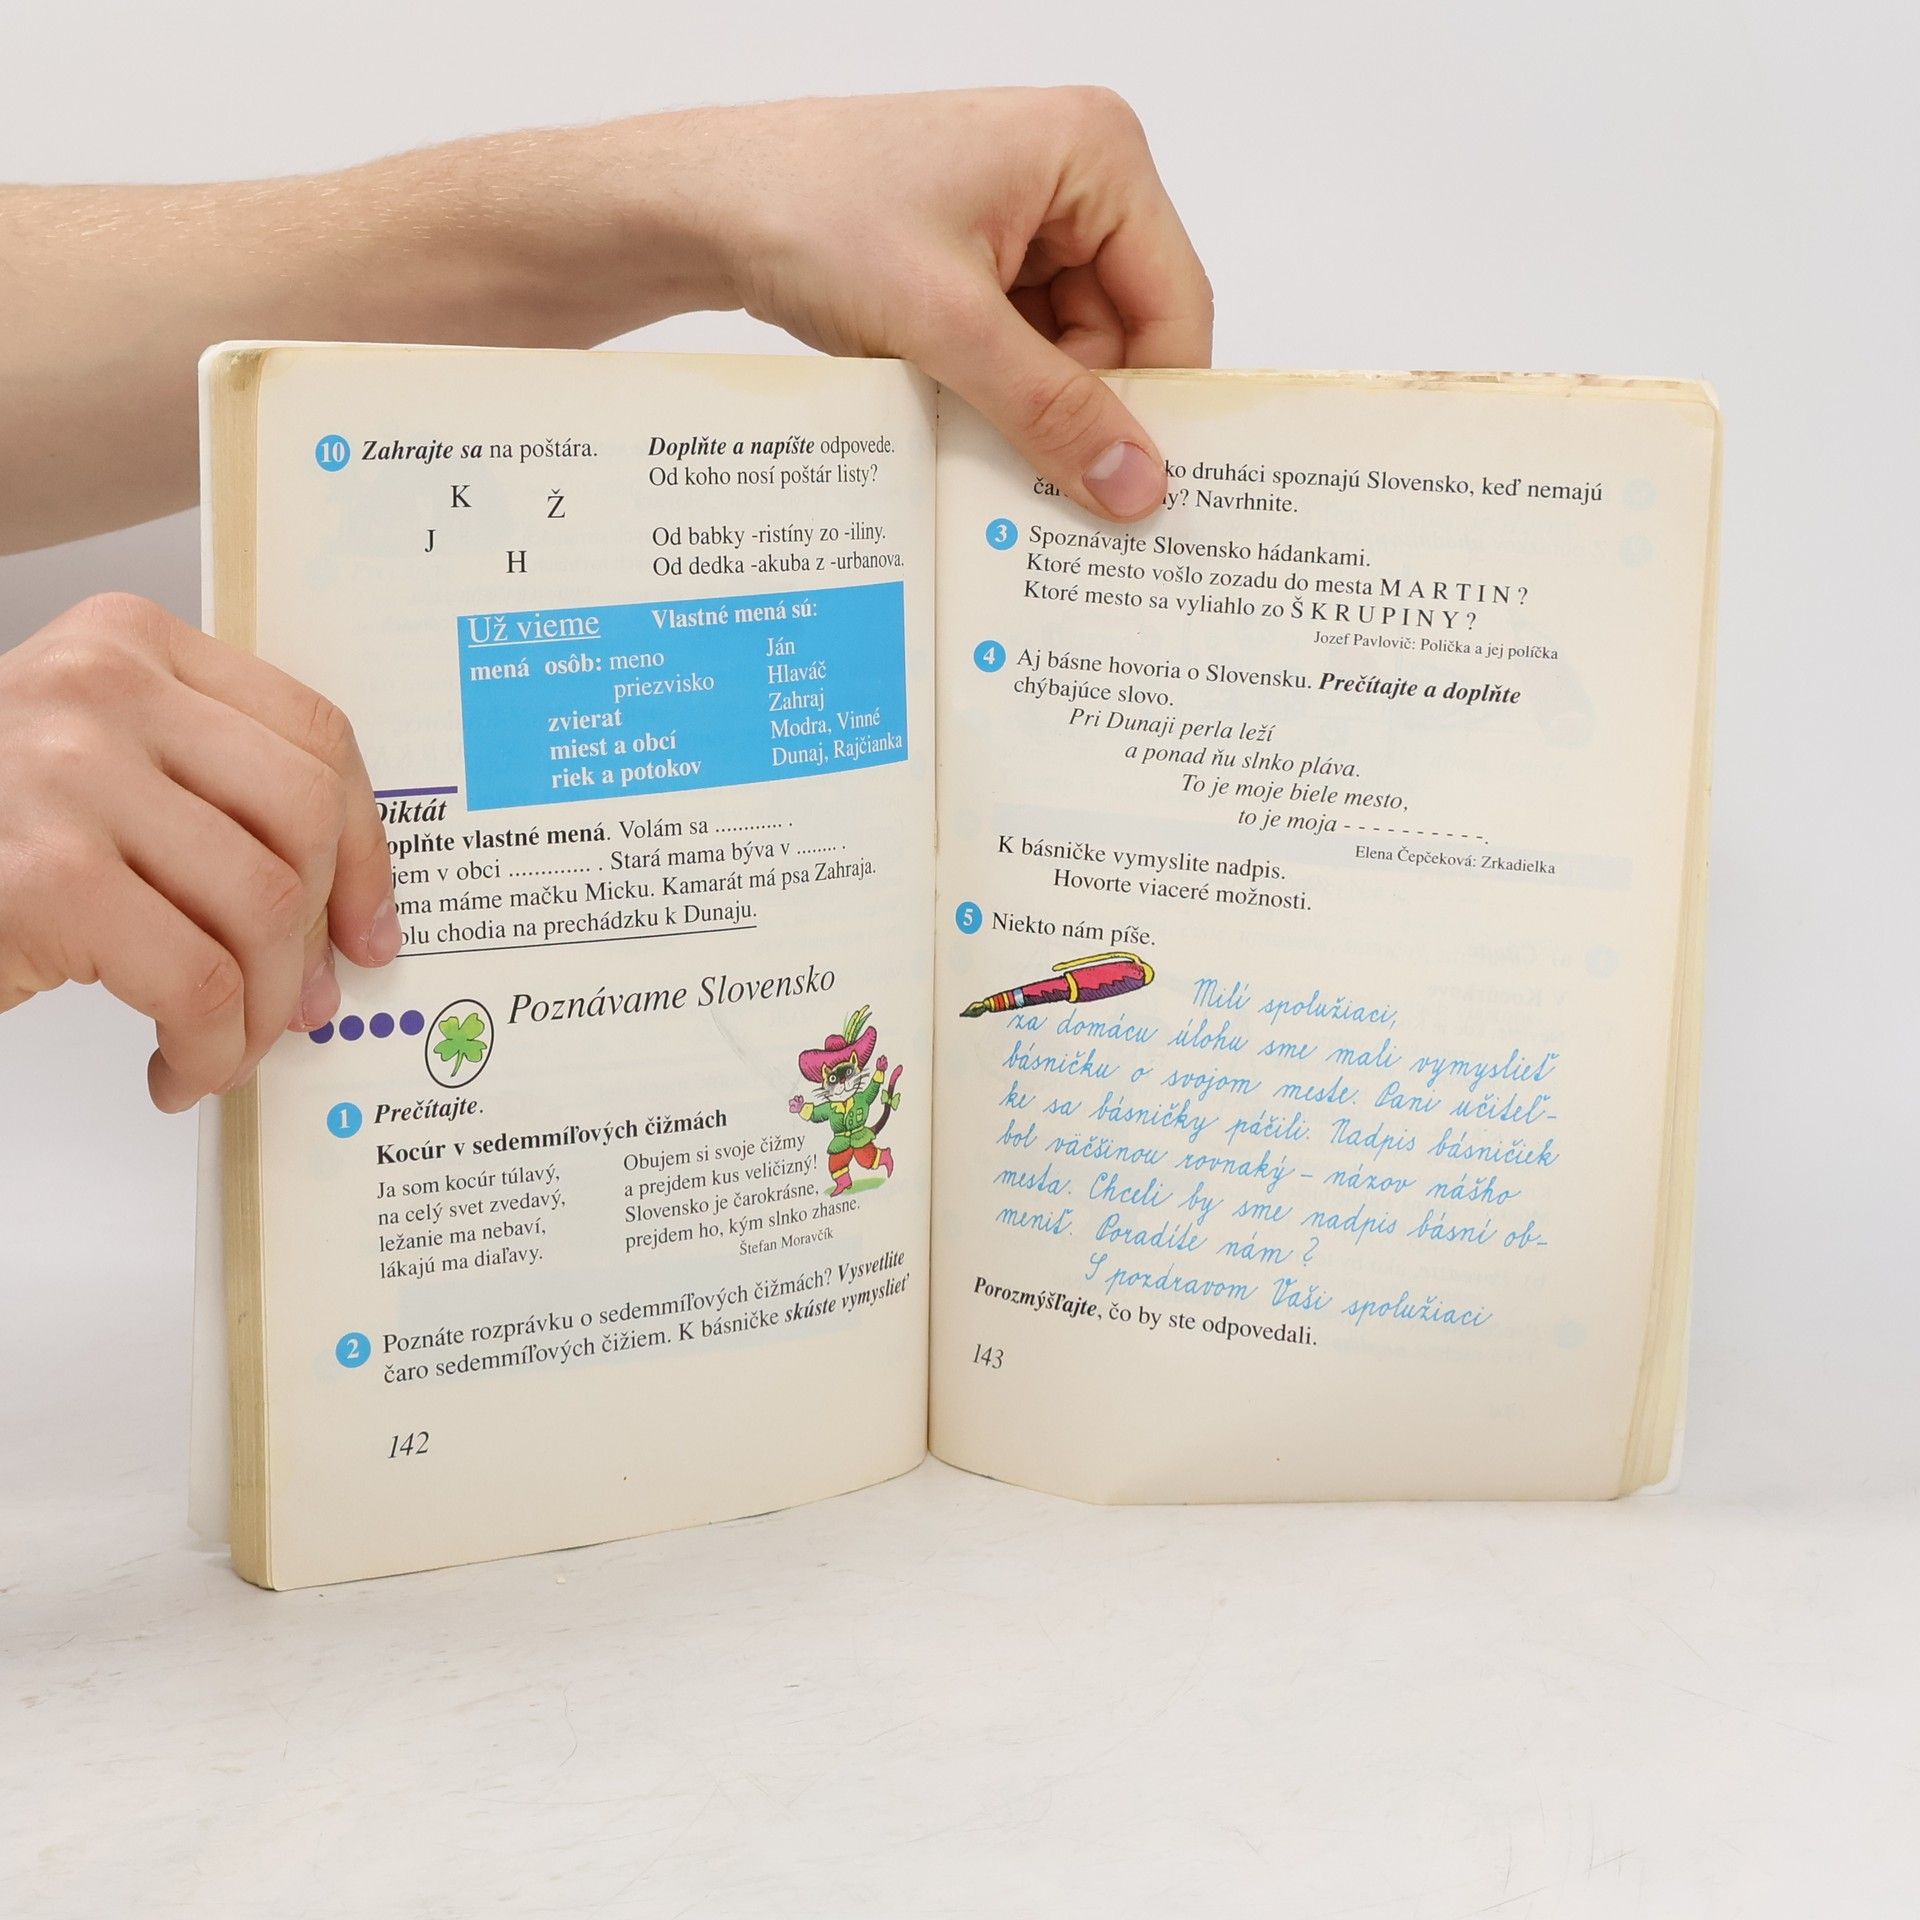 10 Zahrajte sa na poštára.
K
Ž
J
H
Doplňte a napíšte odpovede.
Od koho nosí poštár listy?
Od babky -ristíny zo -iliny.
Od dedka -akuba z -urbanova.
Už vieme Vlastné mená sú:
mená osôb: meno Ján
priezvisko Hlaváč
zvierat Zahraj
miest a obcí Modra, Vinné
riek a potokov Dunaj, Rajčianka
Diktát
oplňte vlastné mená. Volám sa ............ .
jem v obci ............. . Stará mama býva v ........ .
oma máme mačku Micku. Kamarát má psa Zahraja.
olu chodia na prechádzku k Dunaju.
Poznávame Slovensko
1 Prečítajte.
Kocúr v sedemmíľových čižmách
Ja som kocúr túlavý,
na celý svet zvedavý,
ležanie ma nebaví,
lákajú ma diaľavy.
Obujem si svoje čižmy
a prejdem kus veličizný!
Slovensko je čarokrásne,
prejdem ho, kým slnko zhasne.
Štefan Moravčík
2 Poznáte rozprávku o sedemmíľových čižmách? Vysvetlite
čaro sedemmíľových čižiem. K básničke skúste vymyslieť
142
ko druháci spoznajú Slovensko, keď nemajú
čar y? Navrhnite.
3 Spoznávajte Slovensko hádankami.
Ktoré mesto vošlo zozadu do mesta M A R T I N ?
Ktoré mesto sa vyliahlo zo Š K R U P I N Y ?
Jozef Pavlovič: Polička a jej políčka
4 Aj básne hovoria o Slovensku. Prečítajte a doplňte
chýbajúce slovo.
Pri Dunaji perla leží
a ponad ňu slnko pláva.
To je moje biele mesto,
to je moja - - - - - - - - - -.
Elena Čepčeková: Zrkadielka
K básničke vymyslite nadpis.
Hovorte viaceré možnosti.
5 Niekto nám píše.
Milí spolužiaci,
za domácu úlohu sme mali vymyslieť
básničku o svojom meste. Pani učiteľ-
ke sa básničky páčili. Nadpis básničiek
bol väčšinou rovnaký – názov nášho
mesta. Chceli by sme nadpis básní ob-
meniť. Poradíte nám?
S pozdravom Vaši spolužiaci
Porozmýšľajte, čo by ste odpovedali.
143